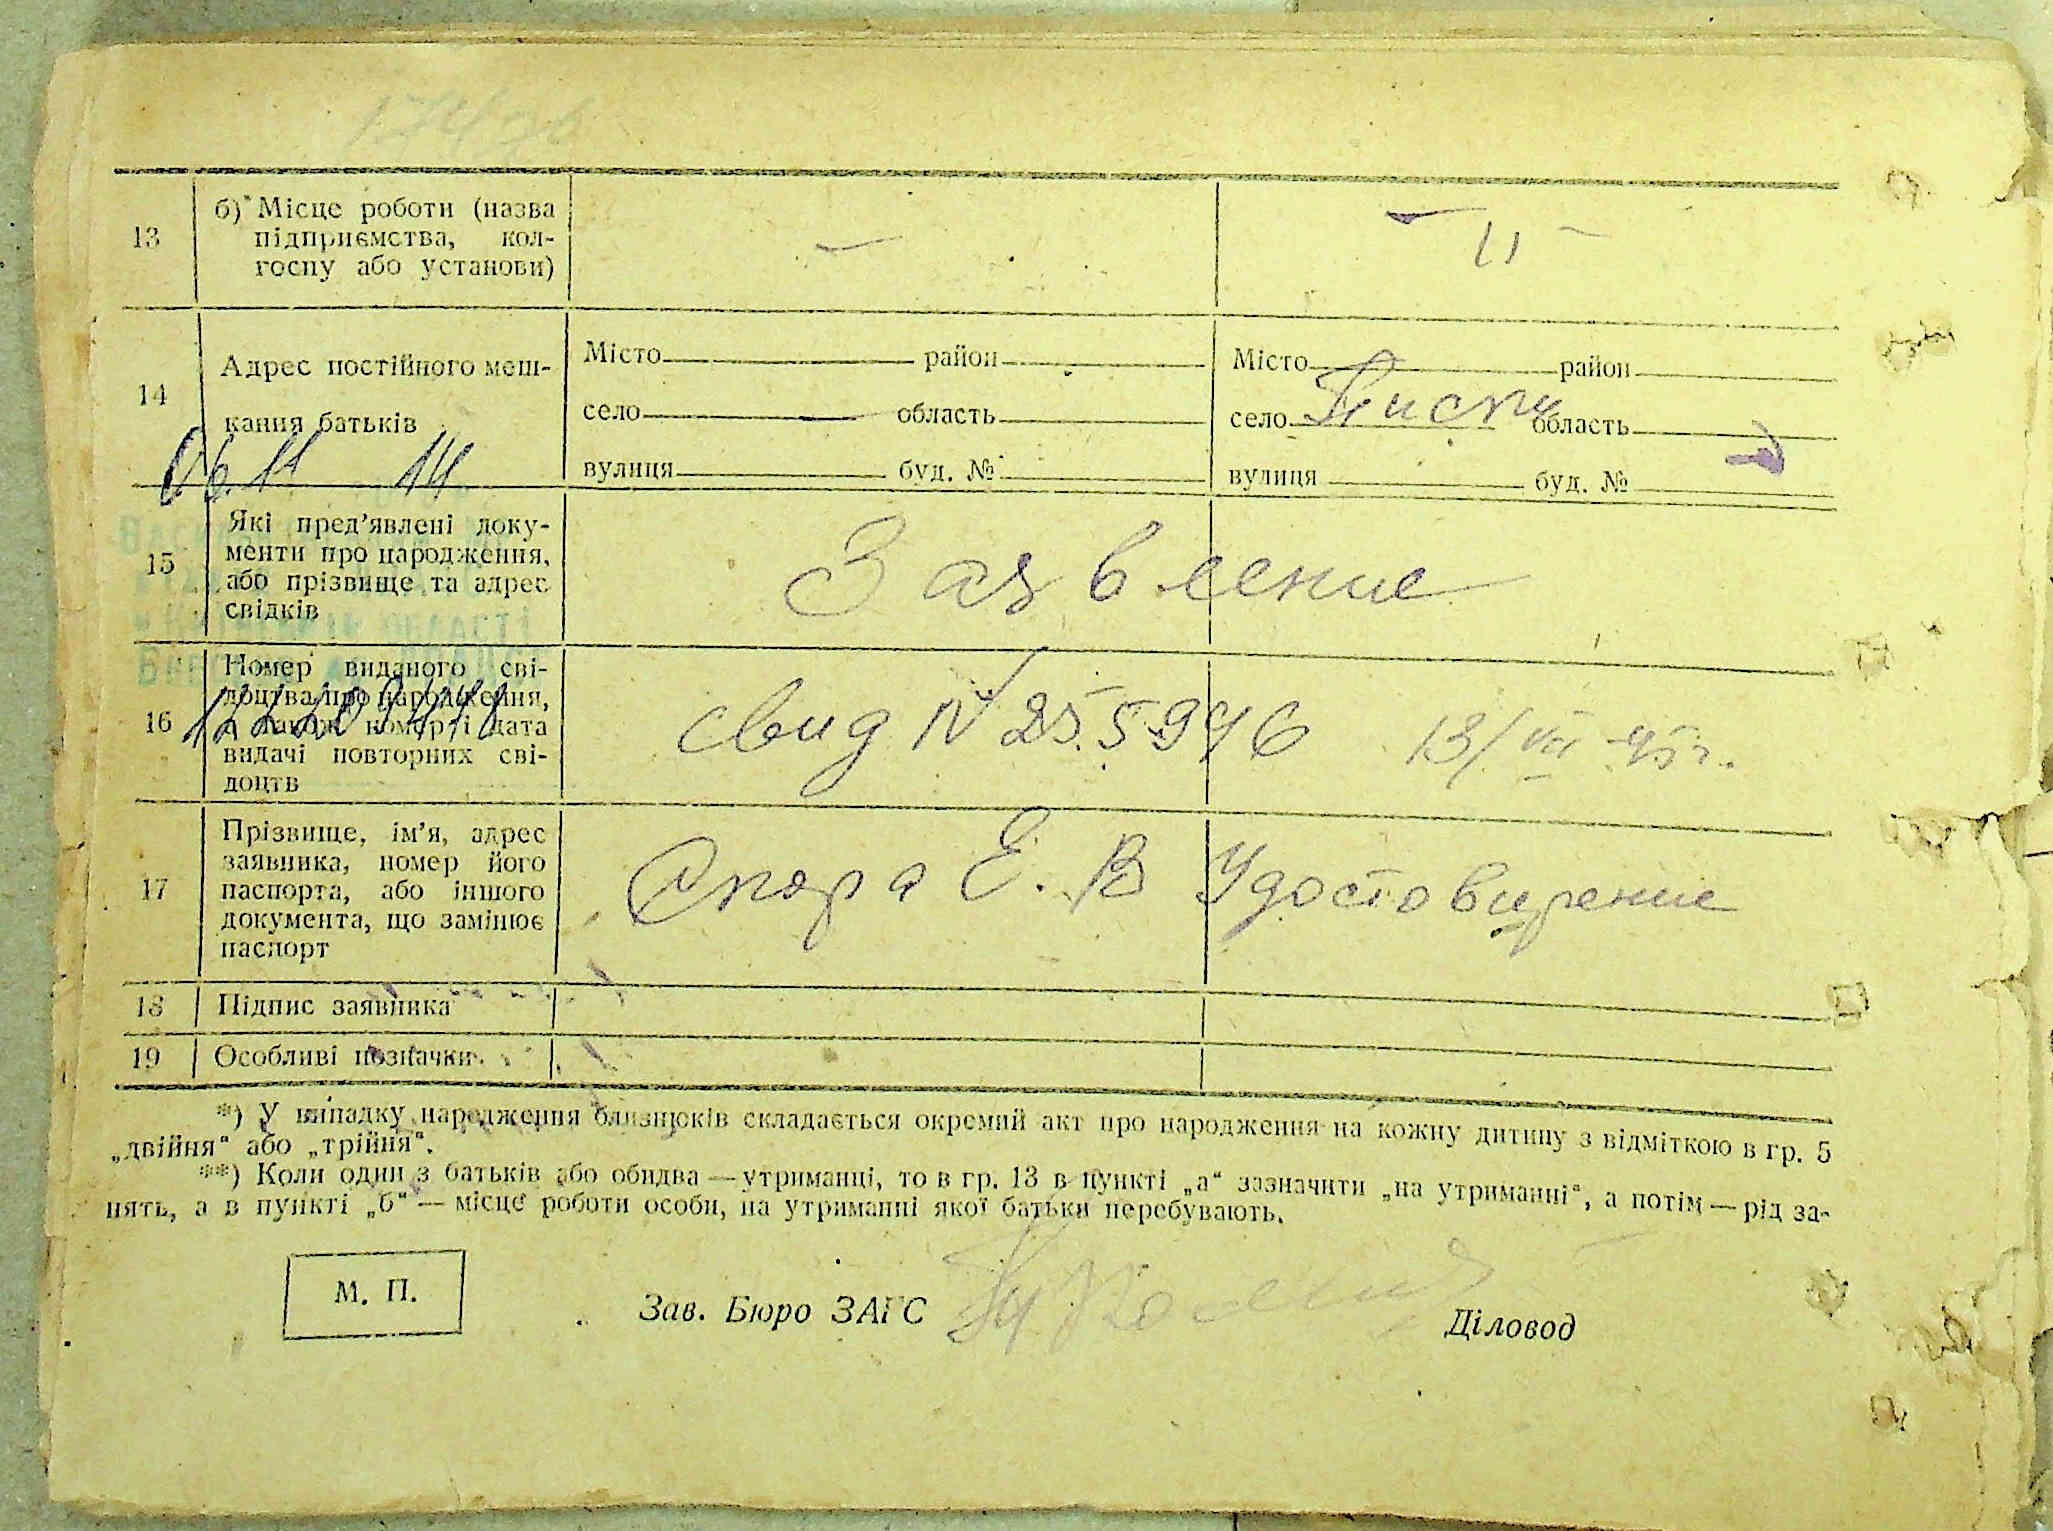 13
б)* Місце роботи (назва
підприємства, кол-
госпу або установи)
—
— II —
14
Адрес постійного меш-
кання батьків
Місто район
село область
вулиця буд. №
Місто район
село Писки область
вулиця буд. №
15
Які пред’явлені доку-
менти про народження,
або прізвище та адрес
свідків
Заявление
16
Номер виданого сві-
доцтва про народження,
а також номер і дата
видачі повторних сві-
доцтв
свид № 255946 13/VII 45 г.
17
Прізвище, ім’я, адрес
заявника, номер його
паспорта, або іншого
документа, що замінює
паспорт
Е. В Удостовирение
18 Підпис заявника
19 Особливі позначки
*) У випадку народження близнюків складається окремий акт про народження на кожну дитину з відміткою в гр. 5
„двійня“ або „трійня“.
**) Коли один з батьків або обидва — утриманці, то в гр. 13 в пункті „а“ зазначити „на утриманні“, а потім — рід за-
нять, а в пункті „б“ — місце роботи особи, на утриманні якої батьки перебувають.
М. П.
Зав. Бюро ЗАГС
Діловод